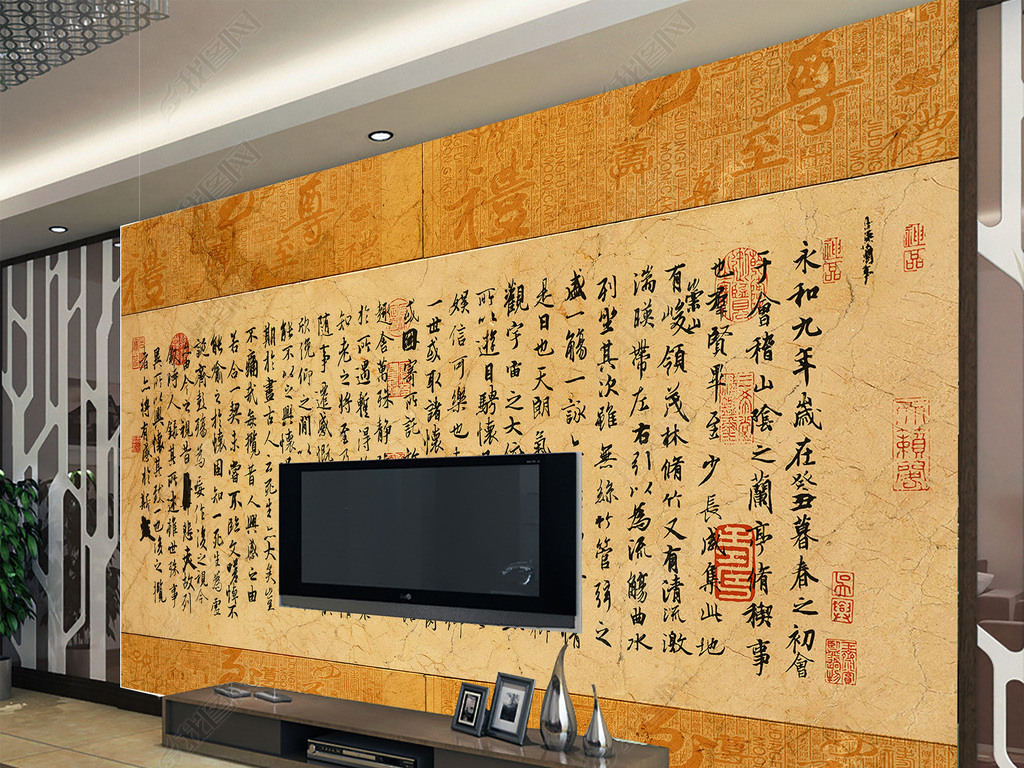 尊
至
禮
禮
尊
至
禮
禮
神品
神品
永和九年歲在癸丑暮春之初會
于會稽山陰之蘭亭脩禊事
也羣賢畢至少長咸集此地
有崇山峻領茂林脩竹又有清流激
湍暎帶左右引以為流觴曲水
列坐其次雖無絲竹管弦之
盛一觴一詠
是日也天朗氣
觀宇宙之大俯
所以遊目騁懷
娛信可樂也
一世或取諸懷
或因寄所託
趣舍萬殊靜
於所遇暫得
知老之將至
隨事遷感慨
欣俛仰之間
能不以之興懷
期於盡古人云死生亦大矣豈
不痛哉每攬昔人興感之由
若合一契未嘗不臨文嗟悼不
能喻之於懷固知一死生為虛
誕齊彭殤為妄作後之視今
今之視昔悲夫故列
敘時人錄其所述雖世殊事
異所以興懷其致一也後之攬
者亦將有感於斯